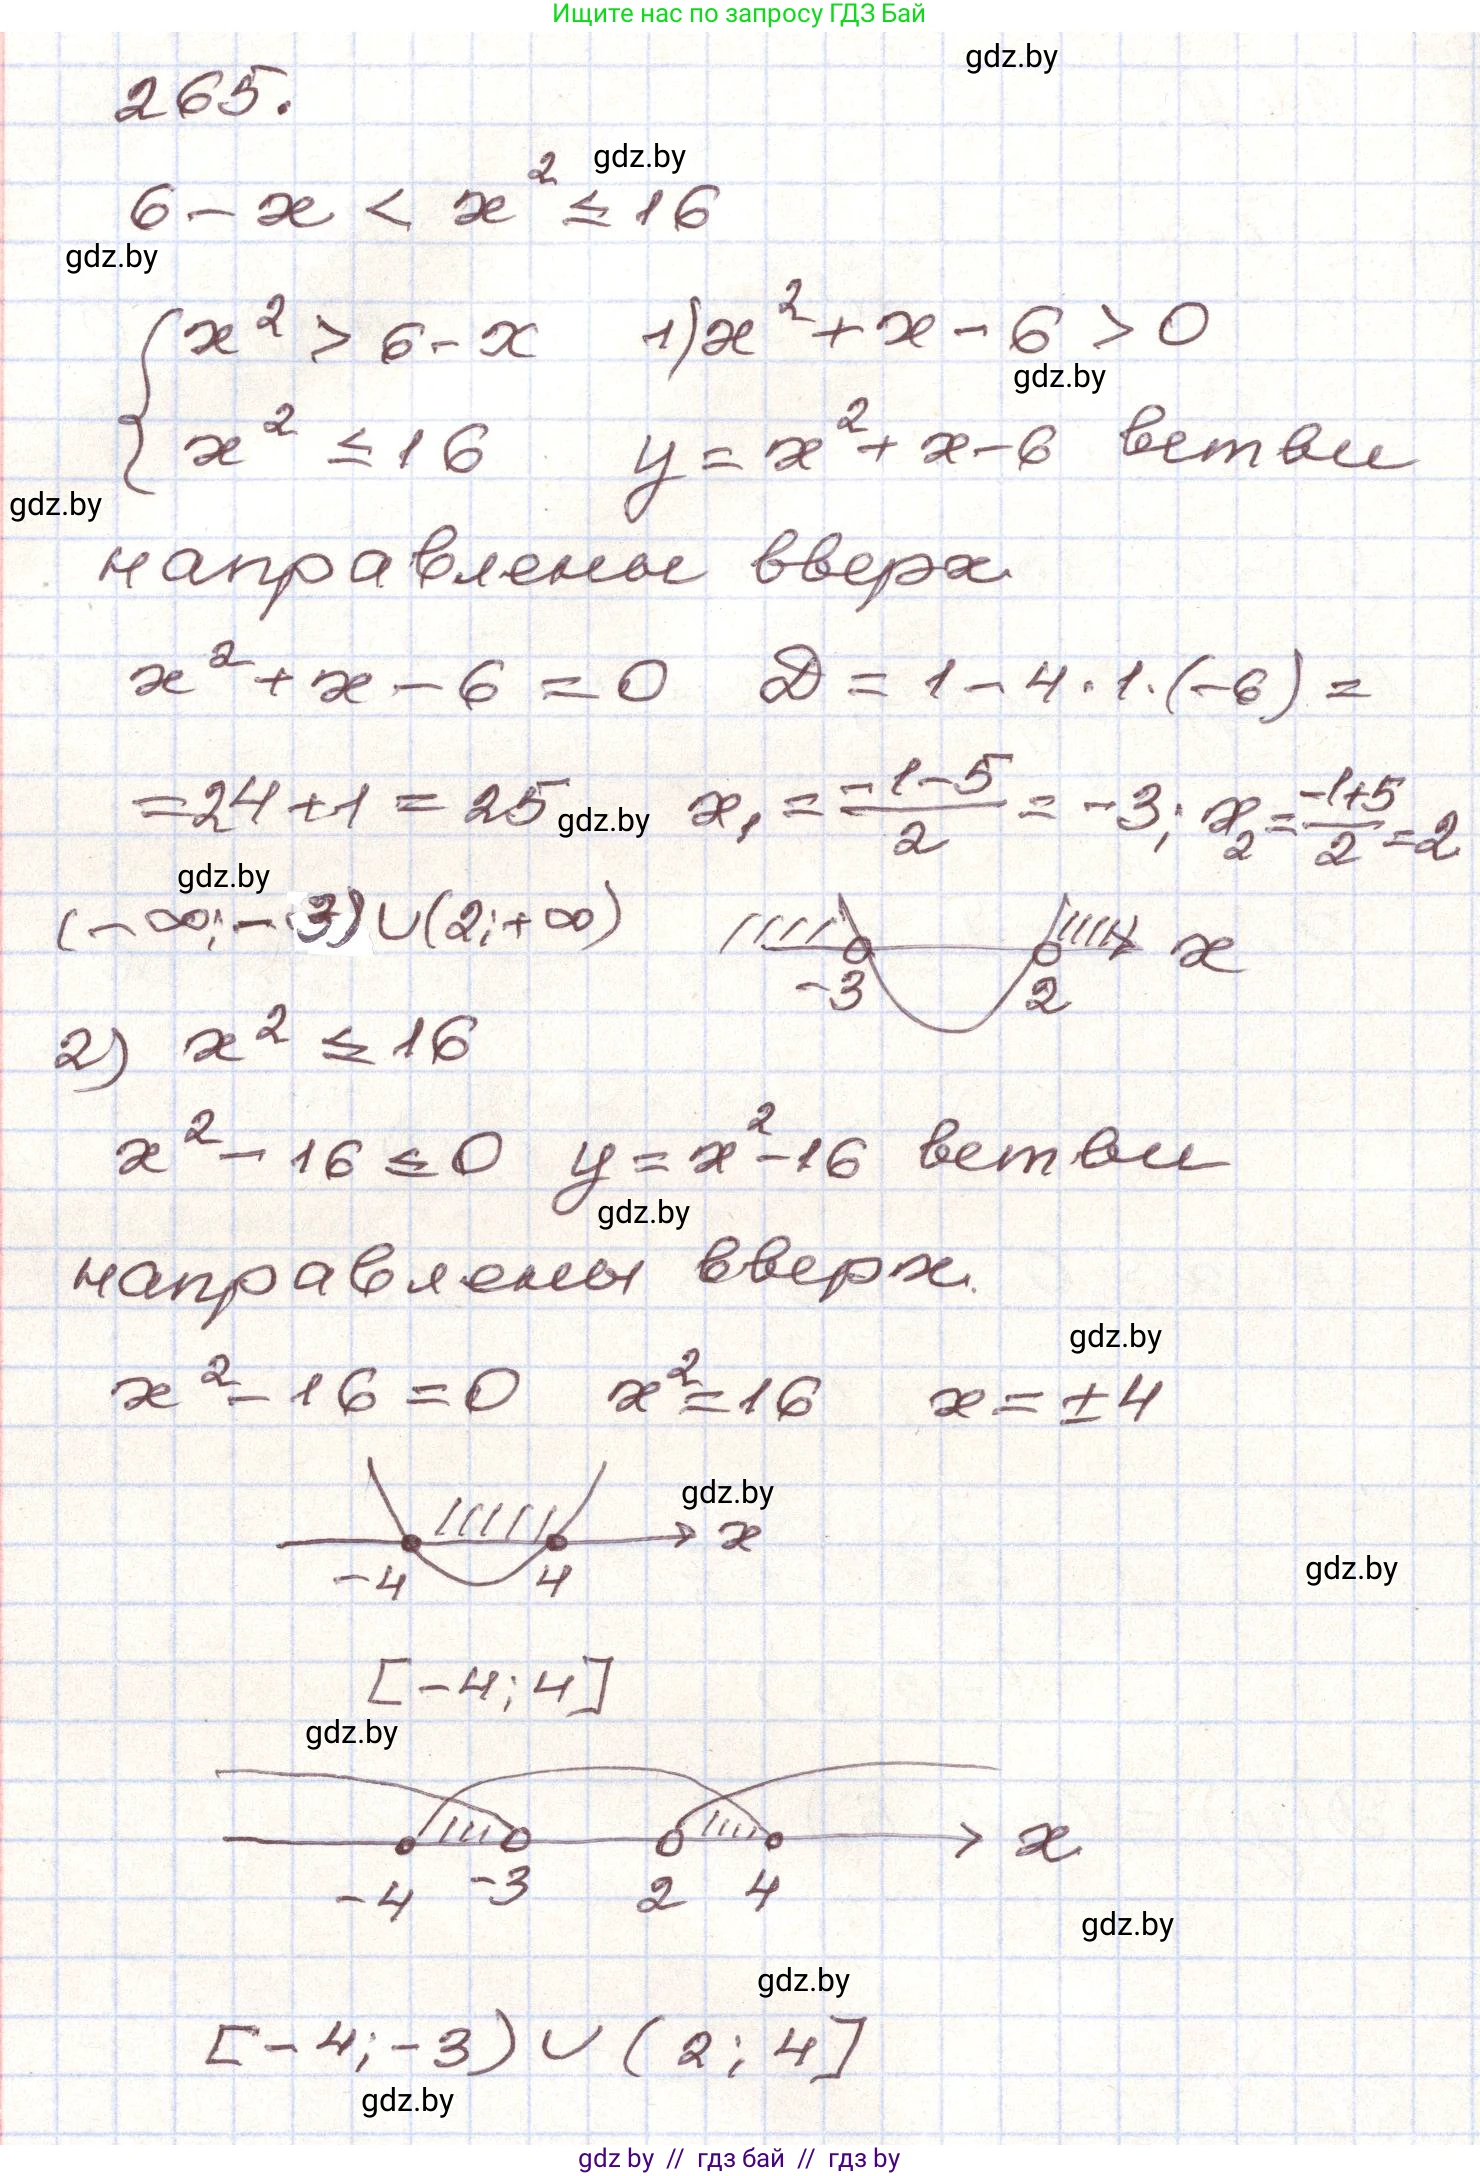 Ищите нас по запросу ГДЗ Бай
gdz.by
265.
gdz.by
6 - x < x² ≤ 16
gdz.by
{ x² > 6 - x    1) x² + x - 6 > 0
gdz.by
x² ≤ 16    y = x² + x - 6 ветви
gdz.by
направлены вверх.
x² + x - 6 = 0    D = 1 - 4 · 1 · (-6) =
= 24 + 1 = 25    x₁ = (-1-5)/2 = -3; x₂ = (-1+5)/2 = 2
gdz.by
gdz.by
(-∞; -3) ∪ (2; +∞)
-3    2    x
2) x² ≤ 16
x² - 16 ≤ 0    y = x² - 16 ветви
gdz.by
направлены вверх.
gdz.by
x² - 16 = 0    x² = 16    x = ±4
gdz.by
-4    4    x
gdz.by
[-4; 4]
gdz.by
-4    -3    2    4    x
gdz.by
gdz.by
[-4; -3) ∪ (2; 4]
gdz.by
gdz by // гдз бай // гдз by